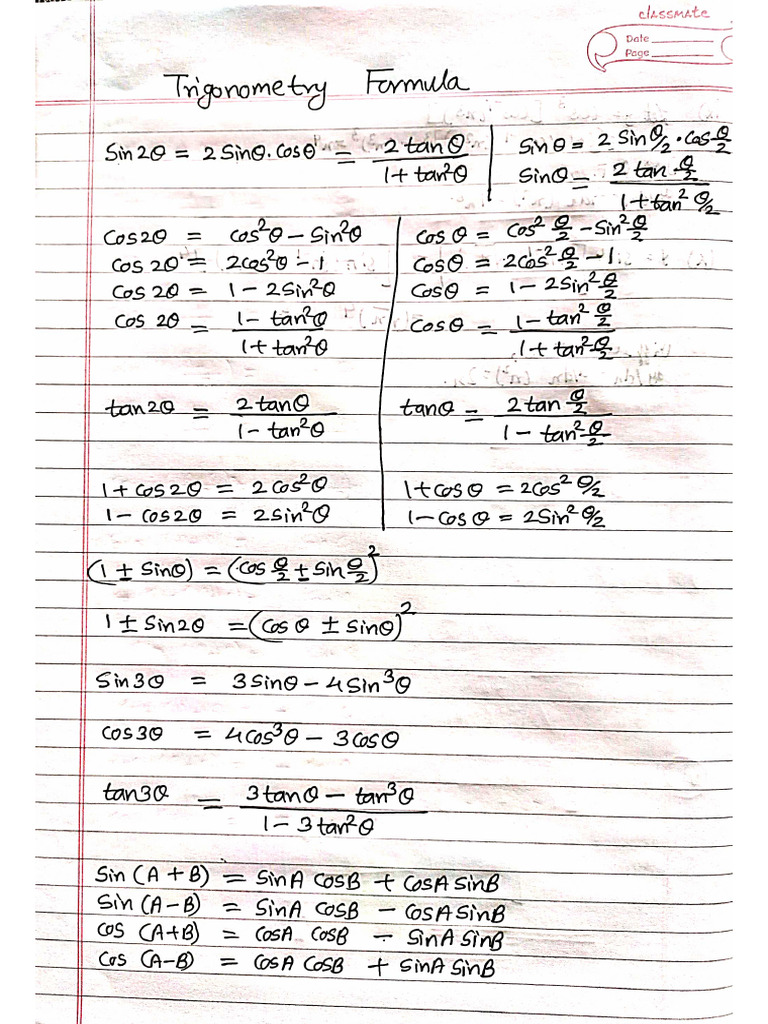 classmate
Date
Page
Trigonometry Formula
Sin2θ = 2 Sinθ.cosθ = 2 tanθ / 1 + tan²θ
Sinθ = 2 Sin θ/2 . cos θ/2
Sinθ = 2 tan θ/2 / 1 + tan² θ/2
cos2θ = cos²θ - Sin²θ
cos 2θ = 2cos²θ - 1
cos 2θ = 1 - 2Sin²θ
cos 2θ = 1 - tan²θ / 1 + tan²θ
cos θ = cos² θ/2 - Sin² θ/2
cosθ = 2cos² θ/2 - 1
cosθ = 1 - 2Sin² θ/2
cosθ = 1 - tan² θ/2 / 1 + tan² θ/2
tan2θ = 2 tanθ / 1 - tan²θ
tanθ = 2 tan θ/2 / 1 - tan² θ/2
1 + cos 2θ = 2 cos²θ
1 - cos2θ = 2sin²θ
1 + cosθ = 2cos² θ/2
1 - cosθ = 2Sin² θ/2
(1 ± sinθ) = (cos θ/2 ± sin θ/2)²
1 ± Sin2θ = (cos θ ± sinθ)²
Sin3θ = 3 Sinθ - 4 Sin³θ
cos3θ = 4cos³θ - 3cosθ
tan3θ = 3 tanθ - tan³θ / 1 - 3 tan²θ
Sin (A + B) = SinA cosB + cosA sinB
Sin (A - B) = SinA cosB - cosA sinB
cos (A+B) = cosA cosB - sinA sinB
cos (A-B) = cosA cosB + sinA sinB